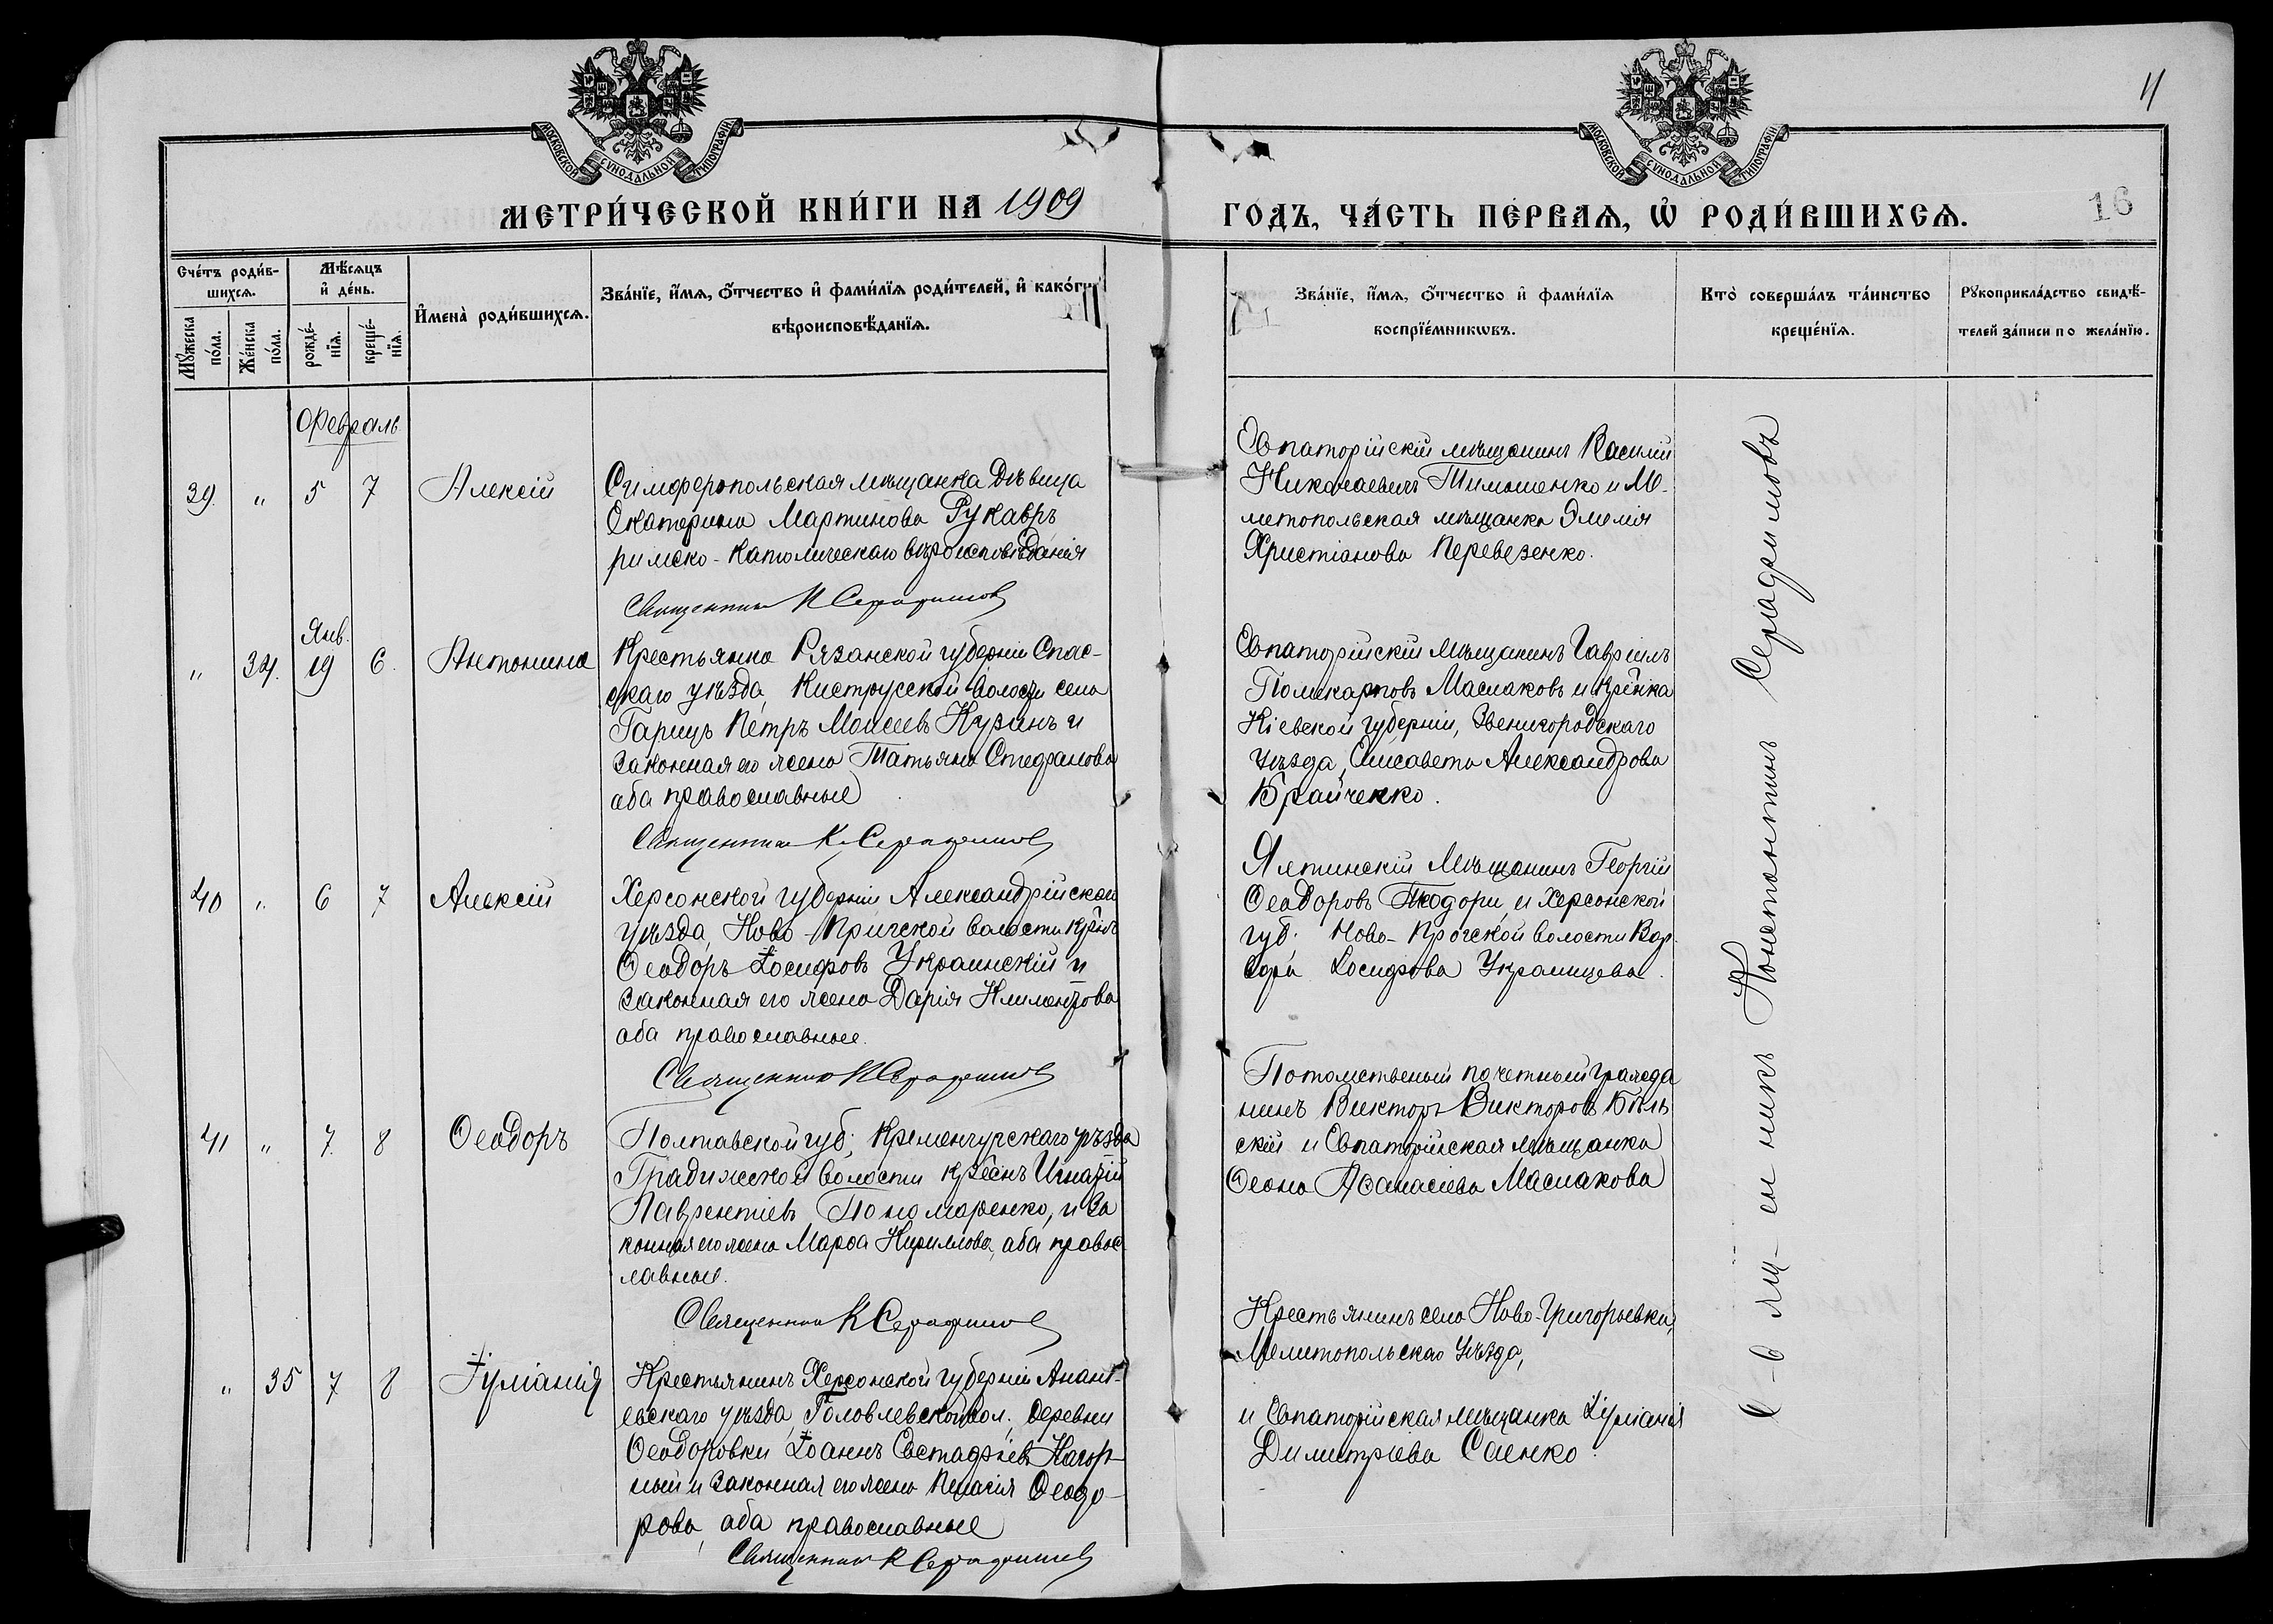 11
МОСКОВСКОЙ СѴНОДАЛЬНОЙ ТИПОГРАФІИ
МОСКОВСКОЙ СѴНОДАЛЬНОЙ ТИПОГРАФІИ
МЕТРИ́ЧЕСКОЙ КНИ́ГИ НА 1909
ГО́ДЪ, ЧА́СТЬ ПЕ́РВАѦ, Ѡ҆ РОДИ́ВШИХСѦ.
16
Сче́тъ роди́в-
шихсѧ.
Мѣ́сѧцъ
и҆ де́нь.
Мꙋ́жеска
по́ла.
Же́нска
по́ла.
рожде́-
нїѧ.
креще́-
нїѧ.
И҆мена̀ роди́вшихсѧ.
Зва́нїе, и҆́мѧ, ѻ҆́тчество и҆ фами́лїѧ роди́телей, и҆ како́гѡ
вѣроисповѣ́данїѧ.
Зва́нїе, и҆́мѧ, ѻ҆́тчество и҆ фами́лїѧ
воспрїе́мникѡвъ.
Кто̀ соверша́лъ та́инство
креще́нїѧ.
Рꙋкоприкла́дство свидѣ́-
телей за́писи по жела́нїю.
Февраль
39. " 5 7 Алексій
Симферопольская мѣщанка Дѣвица
Екатерина Мартинова Рукавръ
римско-католическаго вѣроисповѣданія
Священник К Серафимов
Евпаторійскій мѣщанинъ Василій
Николаевичъ Тимошенко и Ме-
литопольская мѣщанка Эмилія
Христіанова Перевезенко.
Янв.
" 34. 19 6. Антонина
Крестьянина Рязанской губерніи Спас-
скаго уѣзда, Киструсской волости села
Гарицъ Петръ Моисеевъ Кузинъ и
законная его жена Татьяна Стефанова
оба православные
Священник К. Серафимов
Евпаторійскій мѣщанинъ Гавріилъ
Поликарповъ Маслаковъ и кр-нка
Кіевской губерніи, Звенигородскаго
уѣзда, Елисавета Александрова
Брайченко.
40 " 6 7 Алексій
Херсонской губерніи Александрійскаго
уѣзда, Ново-Пригской волости кр-нъ
Ѳеодоръ Іосифовъ Украинскій и
законная его жена Дарія Климентова
оба православные.
Священник К Серафимов
Ялтинскій Мѣщанинъ Георгій
Ѳеодоровъ Теодори, и Херсонской
губ. Ново-Прогской волости Вар-
вара Іосифова Украинцева.
41 " 7. 8 Ѳеодоръ
Полтавской губ; Кременчугскаго уѣзда
Градижской волости кр-нъ Игнатій
Лаврентіевъ Пономаренко, и за
конная его жена Марѳа Кириллова, оба правос-
лавные.
Священник К Серафимов
Потомственый почетный гражда
нинъ Викторъ Викторовъ Бѣль
скій и Евпаторійская мѣщанка
Ѳеона Аѳанасіева Маслакова
" 35 7 8 Іуліанія
Крестьянинъ Херсонской губерніи Анань-
евскаго уѣзда, Головлевской вол; деревни
Ѳеодоровки Іоаннъ Евстафіевъ Нагор-
ный и законная его жена Пелагія Ѳеодо-
рова, оба православные
Священник К Серафимов
Крестьянинъ села Ново-Григорьевки,
Мелитопольскаго Уѣзда,
и Евпаторійская мѣщанка Іуліанія
Димитріева Саенко
С-вящ-ен никъ Константинъ Серафимовъ